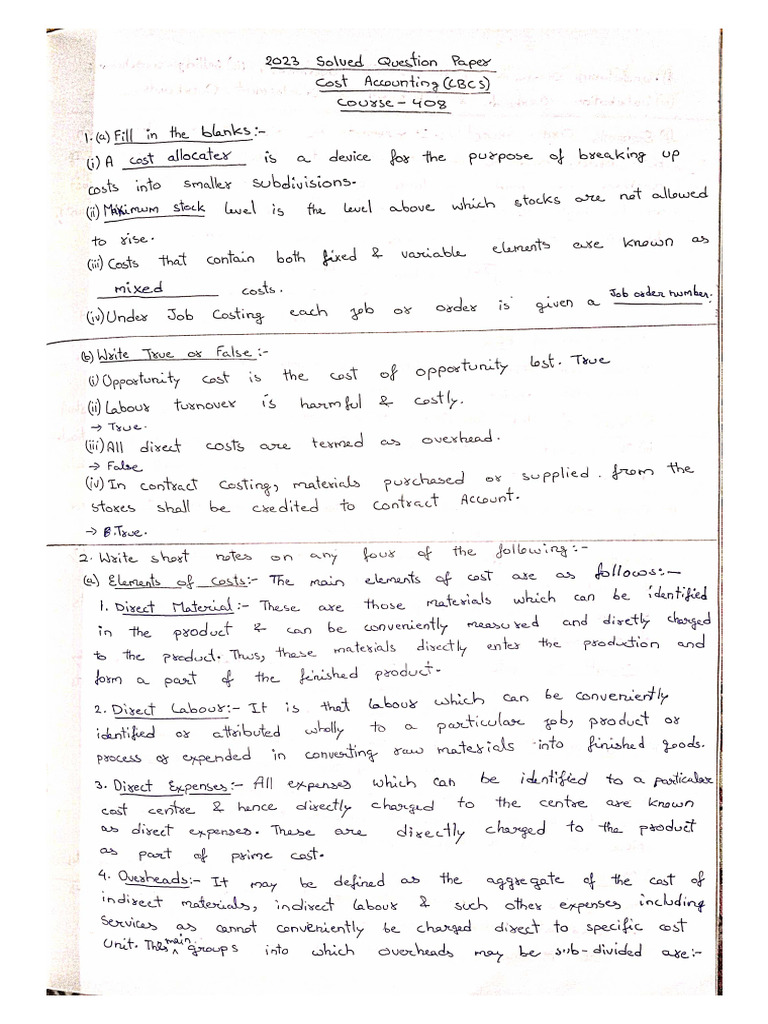 2023 Solved Question Paper
Cost Accounting (CBCS)
Course - 408
1. (a) Fill in the blanks:-
(i) A cost allocater is a device for the purpose of breaking up
costs into smaller subdivisions.
(ii) Maximum stock level is the level above which stocks are not allowed
to rise.
(iii) Costs that contain both fixed & variable elements are known as
mixed costs.
(iv) Under Job Costing each job or order is given a Job order number.
(b) Write True or False:-
(i) Opportunity cost is the cost of opportunity lost. True
(ii) Labour turnover is harmful & costly.
→ True.
(iii) All direct costs are termed as overhead.
→ False
(iv) In contract costing, materials purchased or supplied from the
stores shall be credited to contract Account.
→ True.
2. Write short notes on any four of the following:-
(a) Elements of costs:- The main elements of cost are as follows:-
1. Direct Material:- These are those materials which can be identified
in the product & can be conveniently measured and directly charged
to the product. Thus, these materials directly enter the production and
form a part of the finished product.
2. Direct Labour:- It is that labour which can be conveniently
identified or attributed wholly to a particular job, product or
process or expended in converting raw materials into finished goods.
3. Direct Expenses:- All expenses which can be identified to a particular
cost centre & hence directly charged to the centre are known
as direct expenses. These are directly charged to the product
as part of prime cost.
4. Overheads:- It may be defined as the aggregate of the cost of
indirect materials, indirect labour & such other expenses including
services as cannot conveniently be charged direct to specific cost
unit. main groups into which overheads may be sub-divided are:-